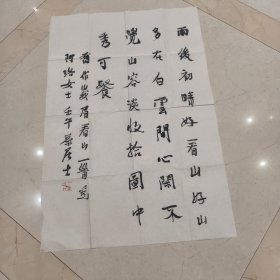 雨後初晴好看山好山
多在白雲間心閑不
覺山容淡收拾圖中
秀可餐
舊作峨眉看山一首寫
阿珍女士 壬午 居士